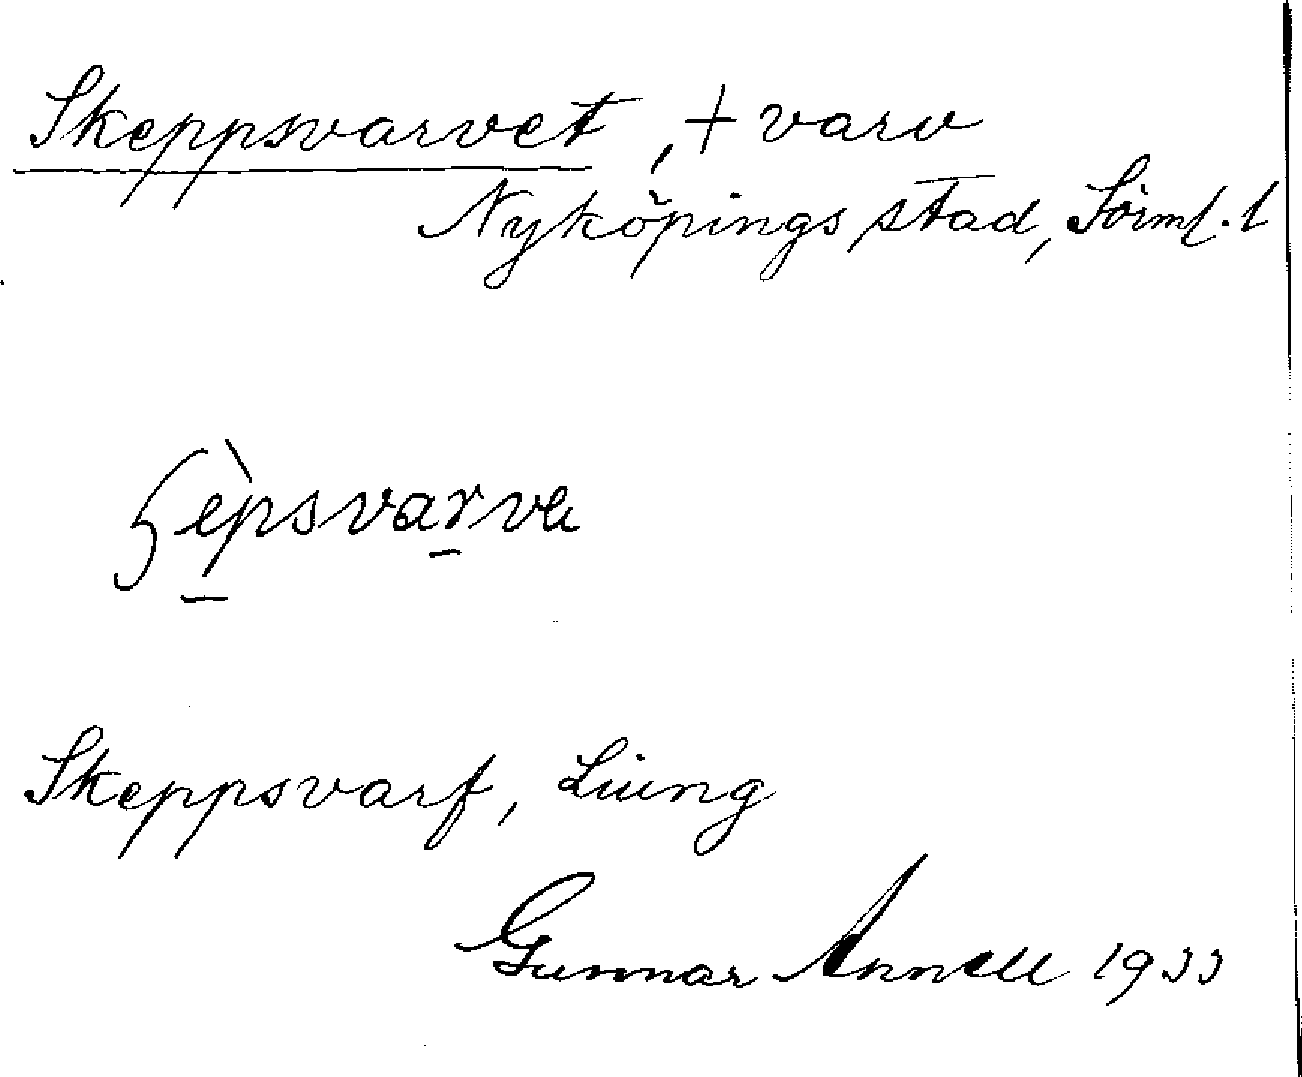 Skeppsvarvet, + varv
Nyköpings stad, Sörml. l
Skeppsvarf, Liung
Gunnar Annell 1933